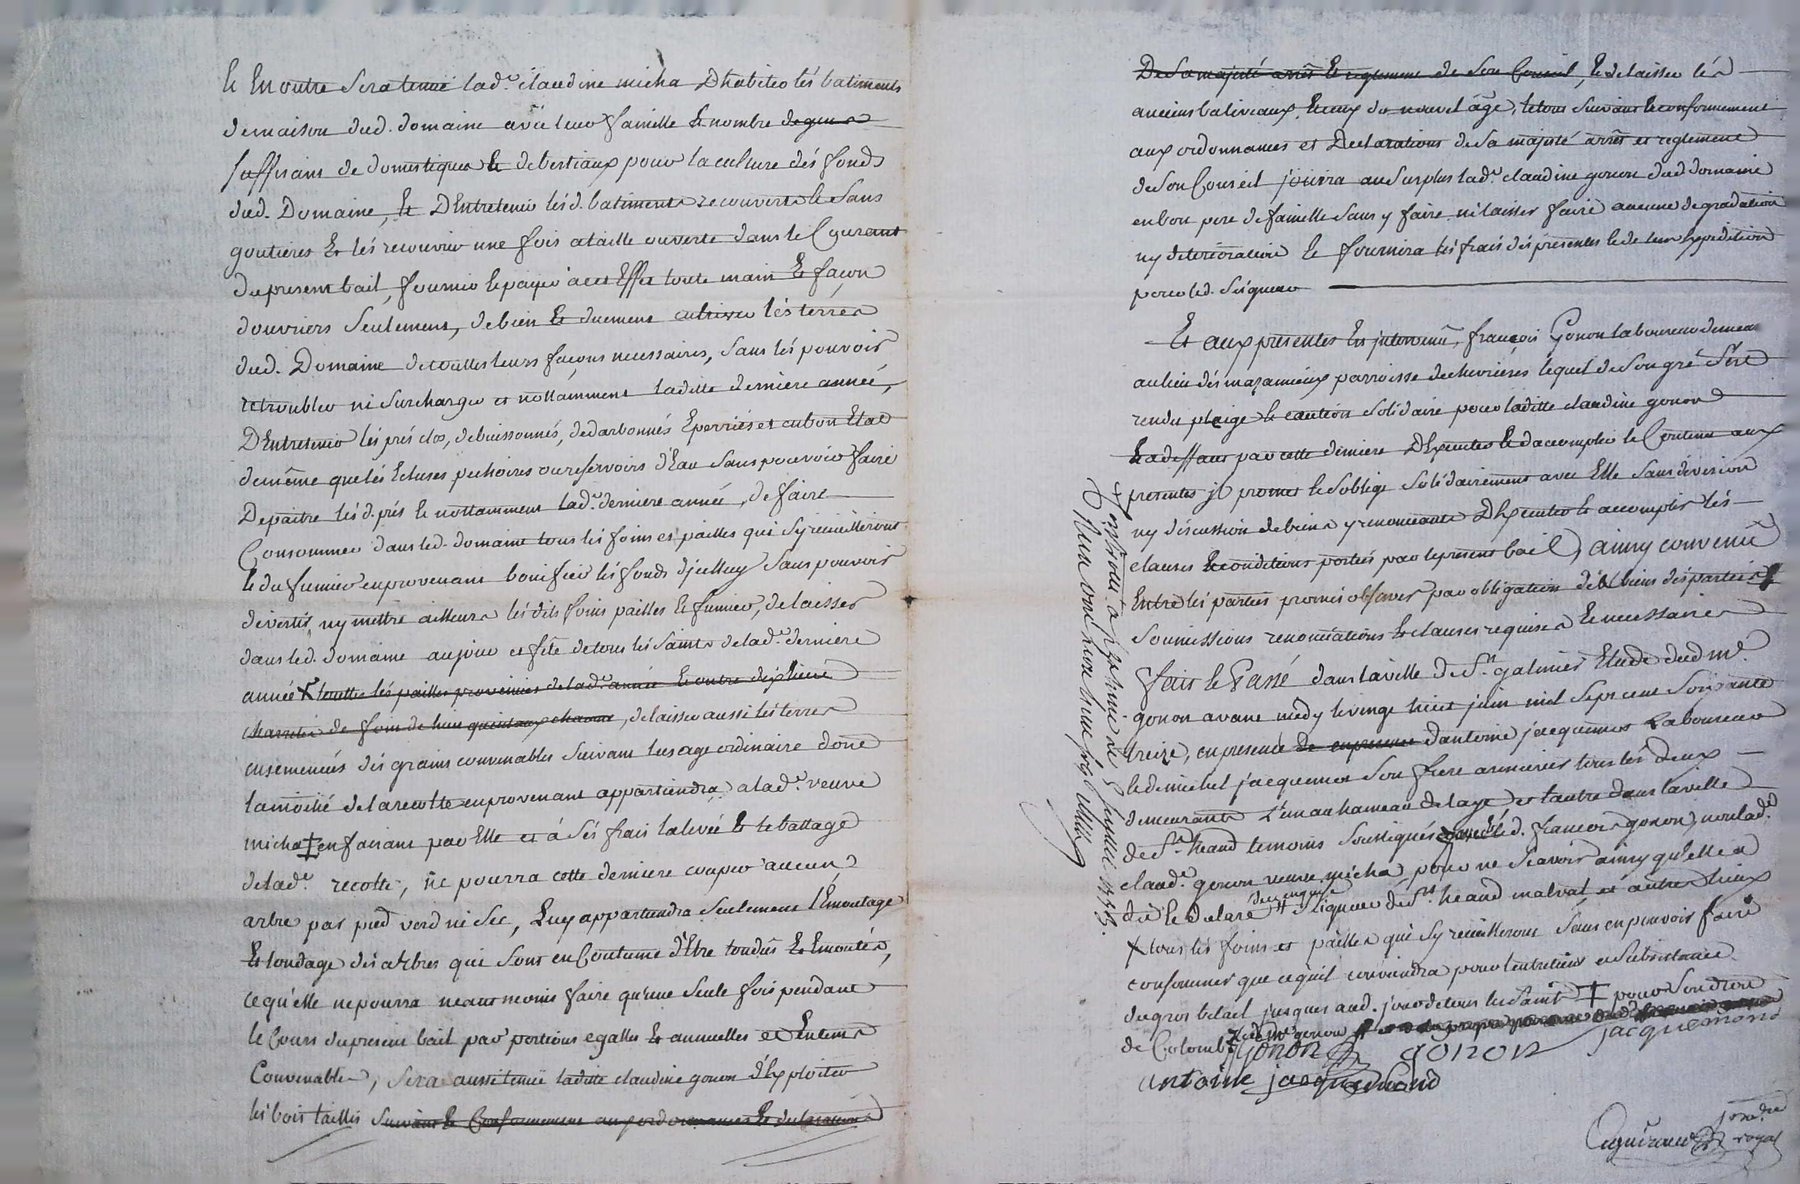 Et En outre Sera tenue lad.e claudine micha D'habiter lés batiments
de maison dud. domaine avec leur famille Et nombre de gens
suffisant de domestiques Et de bestiaux pour la culture dés fonds
dud. Domaine, Et D'Entretenir lés d. batiments recouverts Et Sans
goutieres Et lés recouvrir une fois a taille ouverte dans le Courant
du present bail, fournir Et payer a cet Effet toute main Et façon
d'ouvriers Seulement, de bien Et duement cultiver lés térrés
dud. Domaine de touttes leurs façons necessaires, Sans lés pouvoir
retroubler ni Surcharger et nottamment laditte derniere année,
D'Entretenir lés prés clos, debuissonnés, dedarbonnés Eperriés et en bon Etat
de même que lés Ecluses pechoires ou reservoirs d'Eau Sans pouvoir faire
Depaitre lés d. prés Et nottamment lad.e derniere année, de faire
Consommer dans led. domaine tous lés foins et pailles qui Sy recueilleront
Et du fumier en provenant bonifier lés fonds d'jcelluy Sans pouvoir
divertir ny mettre ailleurs lés dits foins pailles Et fumier, delaisser
dans led. domaine au jour et fête de tous lés Saints de lad.e derniere
année touttes lés pailles provenues de lad.e année Et outre dix huit
charretées de foin de huit quintaux chacune, delaisser aussi lés terres
ensemencées dés grains convenables Suivant l'usage ordinaire dont
la moitié de la recolte en provenant appartiendra a lad.e veuve
micha ‡ en faisant par Elle et à Sés frais la levée Et le battage
de lad.e recolte, ne pourra cette derniere couper aucun
arbre par pied verd ni Sec, Luy appartiendra Seulement l'Emontage
Et tondage dés arbres qui Sont en Coutume d'Etre tondus Et Emontés,
ce qu'elle ne pourra neantmoins faire qu'une Seule fois pendant
le Cours du present bail par portions egalles Et annuelles et En tems
Convenables, Sera aussi tenue laditte claudine gonon d'Exploiter
lés bois taillis Suivant Et Conformement aux ordonnances Et declarations
De Sa majesté arrêts Et reglement de Son Conseil, Et delaisser lés
anciens baliveaux, Et ceux du nouvel âge, Et tous Suivant Et conformement
aux ordonnances et Declarations de Sa majesté arrêts et reglement
de Son Conseil jouira au Surplus lad.e claudine gonon dud. domaine
en bon pere de famille Sans y faire ni laisser faire aucune degradation
ny deterioration Et fournira lés frais dés presentes Et de leur Expedition
pour led. Seigneur
Et aux presentes Est jntervenu, françois Gonon laboureur demeurant
au lieu dés mazamieux parroisse de chevrieres lequel de Son gré S'est
rendu pleige Et caution Solidaire pour laditte claudine gonon
Et a deffaut par cette derniere D'Executer Et d'accomplir le Contenu aux
presentes jl promet Et S'oblige Solidairement avec Elle Sans division
ny discussion de biens y renonceant D'Executer Et accomplir lés
clauses Et conditions portées par le present bail, ainsy convenu
Entre lés parties promis observer par obligation dés biens dés parties
Soumissions renonciations Et clauses requises Et necessaires
fait Et Passé dans la ville de S.t galmier Etude dud m.e
gonon avant midy le vingt huit juin mil Sept cent Soixante
treize, en presence de en presence d'antoine jacquemont Laboureur
Et de michel jacquemont Son frere armurier tous lés deux
demeurants L'un au hameau de laye et l'autre dans la ville
de S.t heand temoins Soussignés avec led. francois gonon, non lad.e
claud.e gonon veuve micha pour ne Scavoir ainsy qu'elle a
dit Et declaré Seigneur de S.t heand malval, et autres lieux
x tous lés foins et pailles qui Sy recueilleront Sans en pouvoir faire
consommer que ce qu'il conviendra pour l'entretien et Subsistance
du gros betail jusques aud. jour de tous lés Saints ‡ pour Son droit
de Colomb
gonon gonon jacquemond
antoine jacquemond